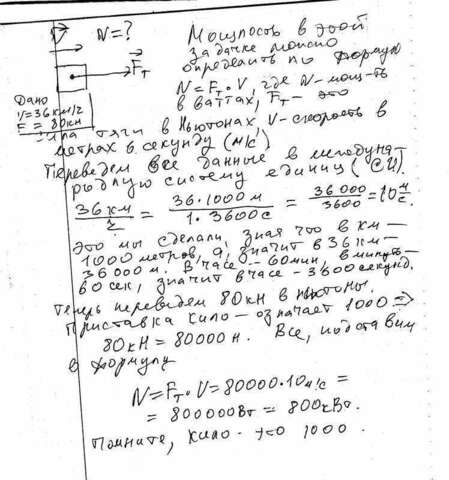 V N=?
Мощность в этой
задачке можно
определить по формуле
Fт
N = Fт · V, где N - мощ-ть
в ваттах, Fт - это
Дано
V=36 км/ч
F = 80кН
сила тяги в Ньютонах, V - скорость в
метрах в секунду (м/с)
Переведем все данные в междунар
родную систему единиц (СИ).
36 км/ч = 36·1000 м/1·3600 с = 36 000/3600 = 10 м/с.
это мы сделали, зная что в км —
1000 метров, а, значит в 36 км —
36 000 м. В часе - 60 мин, в минуте —
60 сек, значит в часе - 3600 секунд.
Теперь переведем 80 кН в ньютоны.
Приставка кило - означает 1000 =>
80кН = 80000 н. Все, подставим
в формулу
N = Fт · V = 80000 · 10 м/с =
= 800000Вт = 800кВт.
Помните, кило - это 1000.